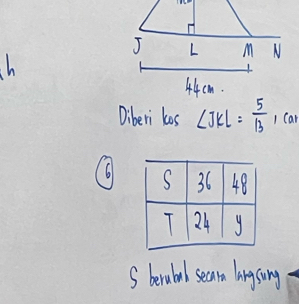 J L M N
44 cm.
Diberi kos ∠JKL = 5/13,
6
S 36 48
T 24 y
S berubah secara langsung